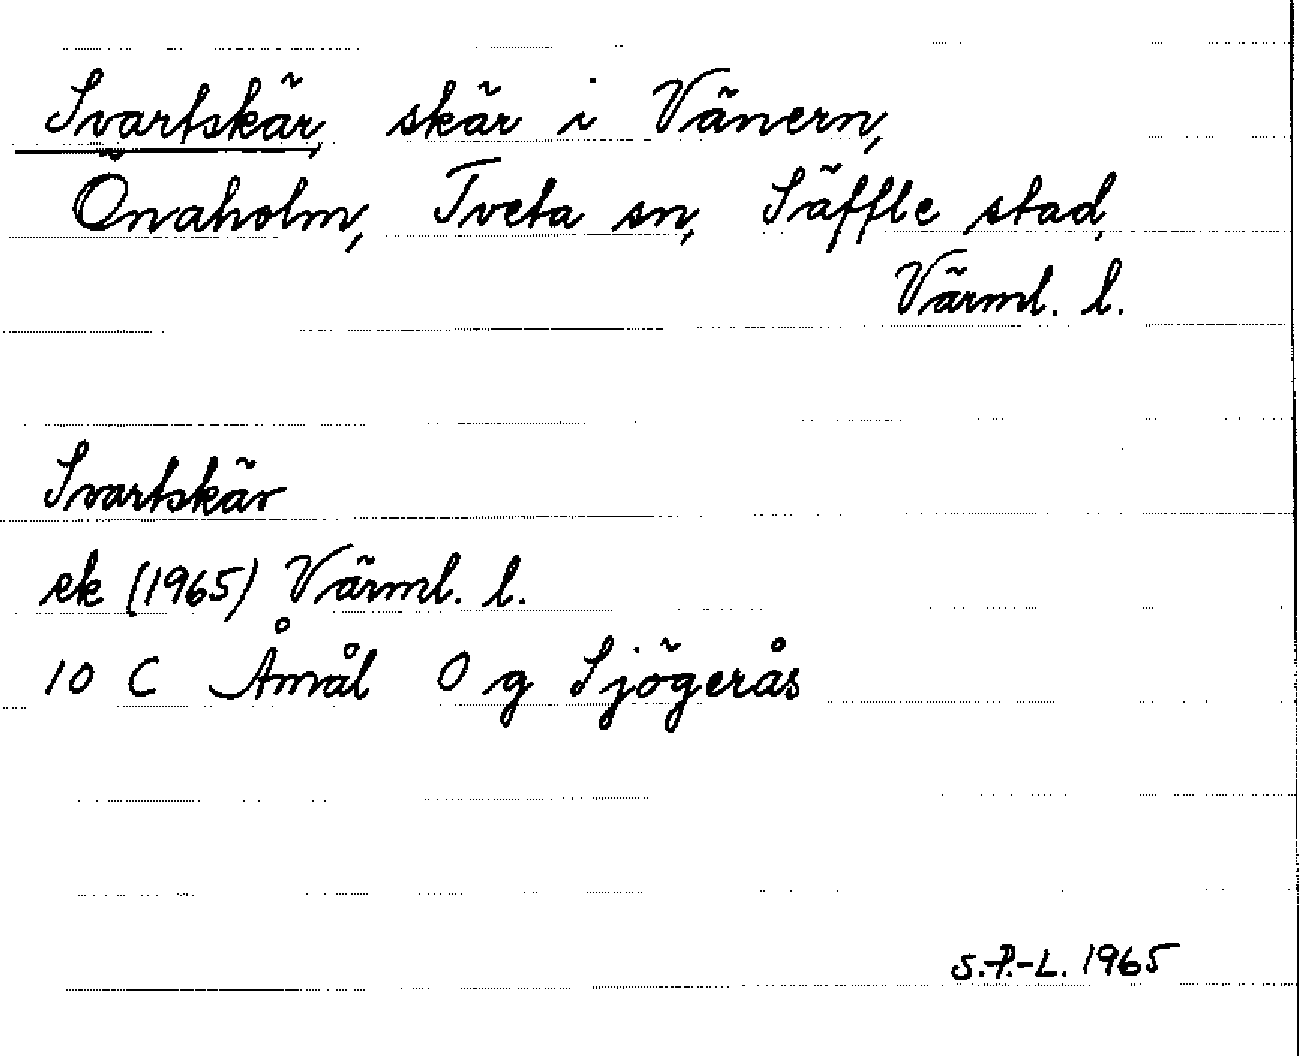 Svartskär, skär i Vänern,
Önaholm, Tveta sn, Säffle stad,
Värml. l.
Svartskär
ek (1965) Värml. l.
10 C Åmål O g Sjögerås
S.P.-L. 1965